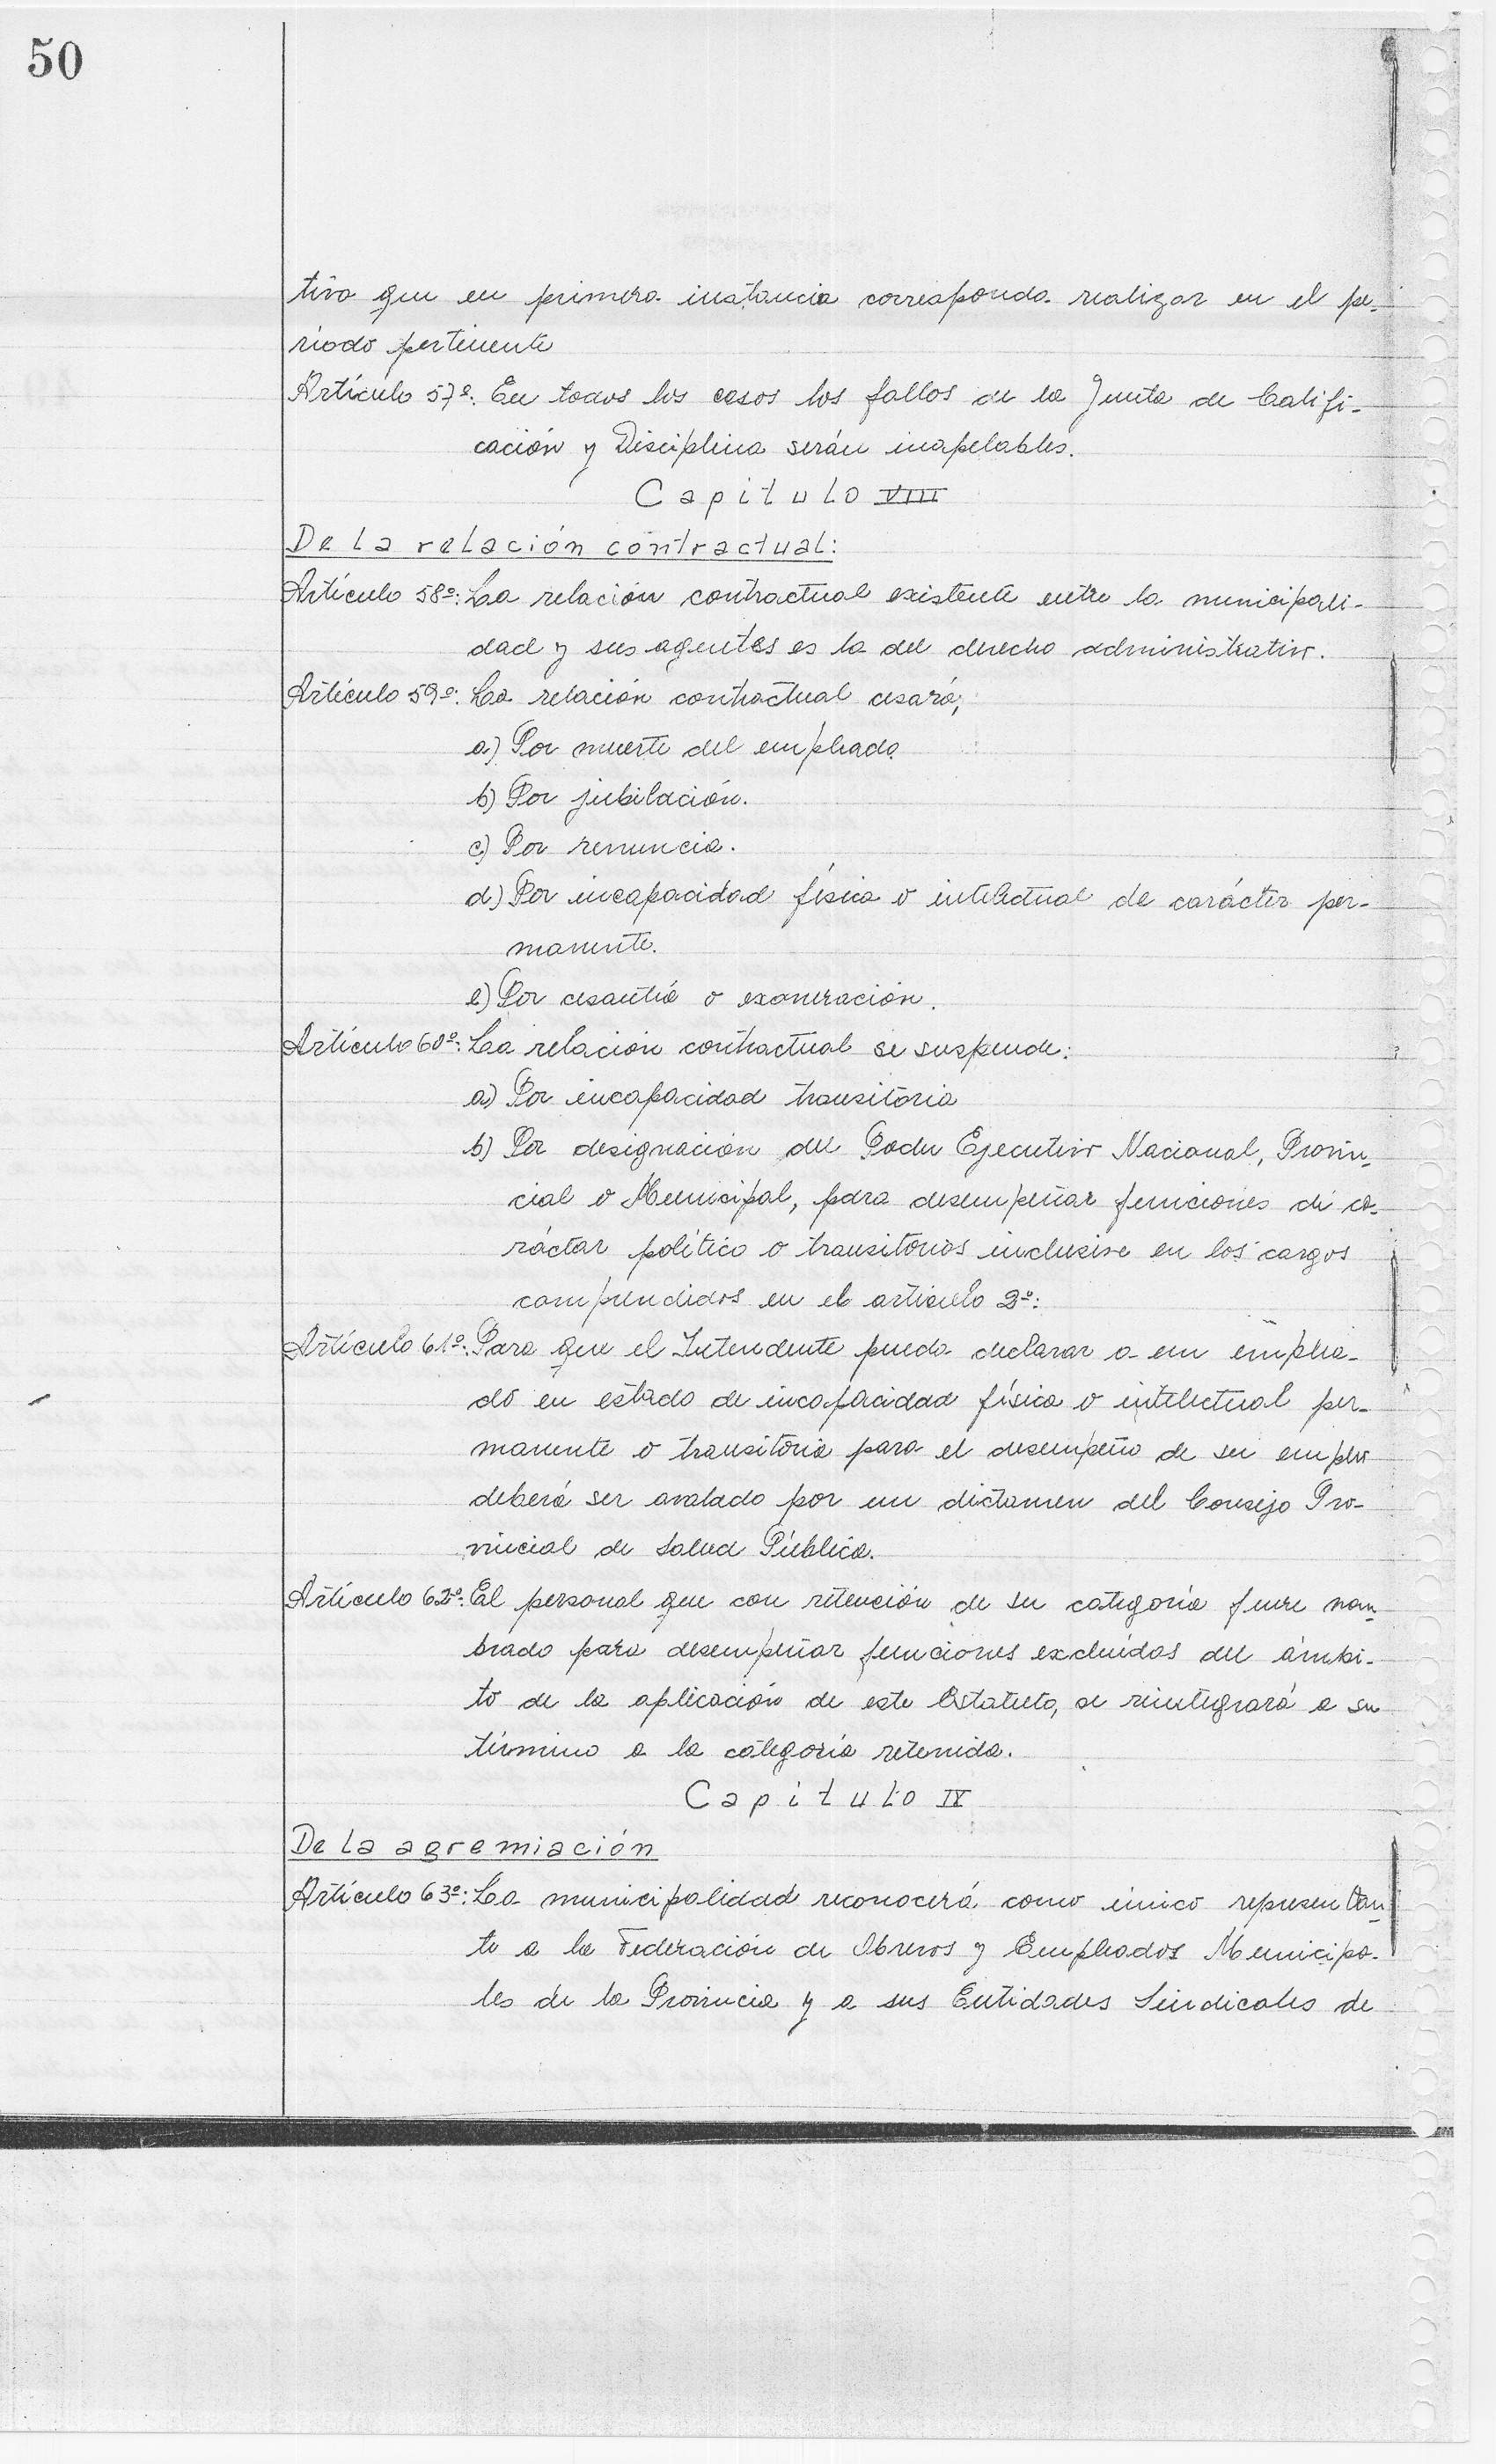 50
tiva que en primera instancia corresponda realizar en el pe-
ríodo pertinente
Artículo 57º: En todos los casos los fallos de la Junta de Califi-
cación y Disciplina serán inapelables.
Capitulo VIII
De la relación contractual:
Artículo 58º: La relación contractual existente entre la municipali-
dad y sus agentes es la del derecho administrativo.
Artículo 59º: La relación contractual cesará;
a) Por muerte del empleado.
b) Por jubilación.
c) Por renuncia.
d) Por incapacidad física o intelectual de carácter per-
manente.
e) Por cesantía o exoneración.
Artículo 60º: La relación contractual se suspende:
a) Por incapacidad transitoria
b) Por designación del Poder Ejecutivo Nacional, Provin-
cial o Municipal, para desempeñar funciones de ca-
ráctar político o transitorias inclusive en los cargos
comprendidos en el articulo 2º:
Artículo 61º: Para que el Intendente pueda declarar a un emplea-
do en estado de incapacidad física o intelectual per-
manente o transitoria para el desempeño de su empleo
deberá ser avalado por un dictamen del Consejo Pro-
vincial de Salud Pública.
Artículo 62º: El personal que con retención de su categoría fuere nom-
brado para desempeñar funciones excluídas del ámbi-
to de la aplicación de este Estatuto, se reintegrará a su
término a la categoría retenida.
Capitulo IV
De la agremiación
Artículo 63º: La municipalidad reconocerá como único representan-
te a la Federación de Obreros y Empleados Municipa-
les de la Provincia y a sus Entidades Sindicales de